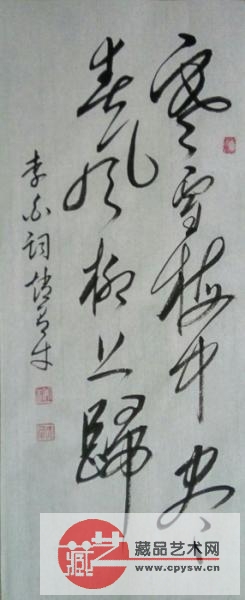 寒雪梅中尽
春风柳上歸
李白詞
藏艺
藏品艺术网
www.cpysw.cn